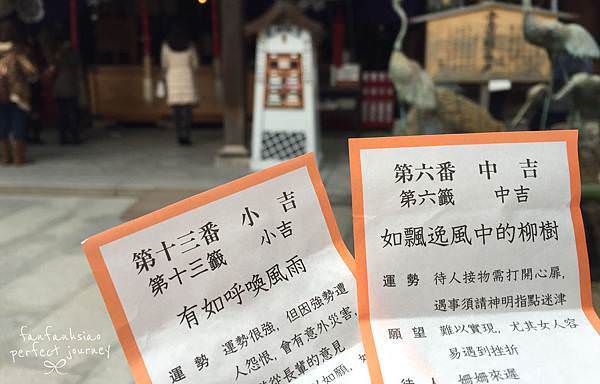 第十三番 小吉
第十三籤 小吉
有如呼喚風雨
運勢 運勢很強,但因強勢遭
人怨恨,會有意外災害,
從長輩的意見
如願,如
第六番 中吉
第六籤 中吉
如飄逸風中的柳樹
運勢 待人接物需打開心扉,
遇事須請神明指點迷津
願望 難以實現,尤其女人容
易遇到挫折
待人 姍姍來遲
fanfanhsiao
perfect journey